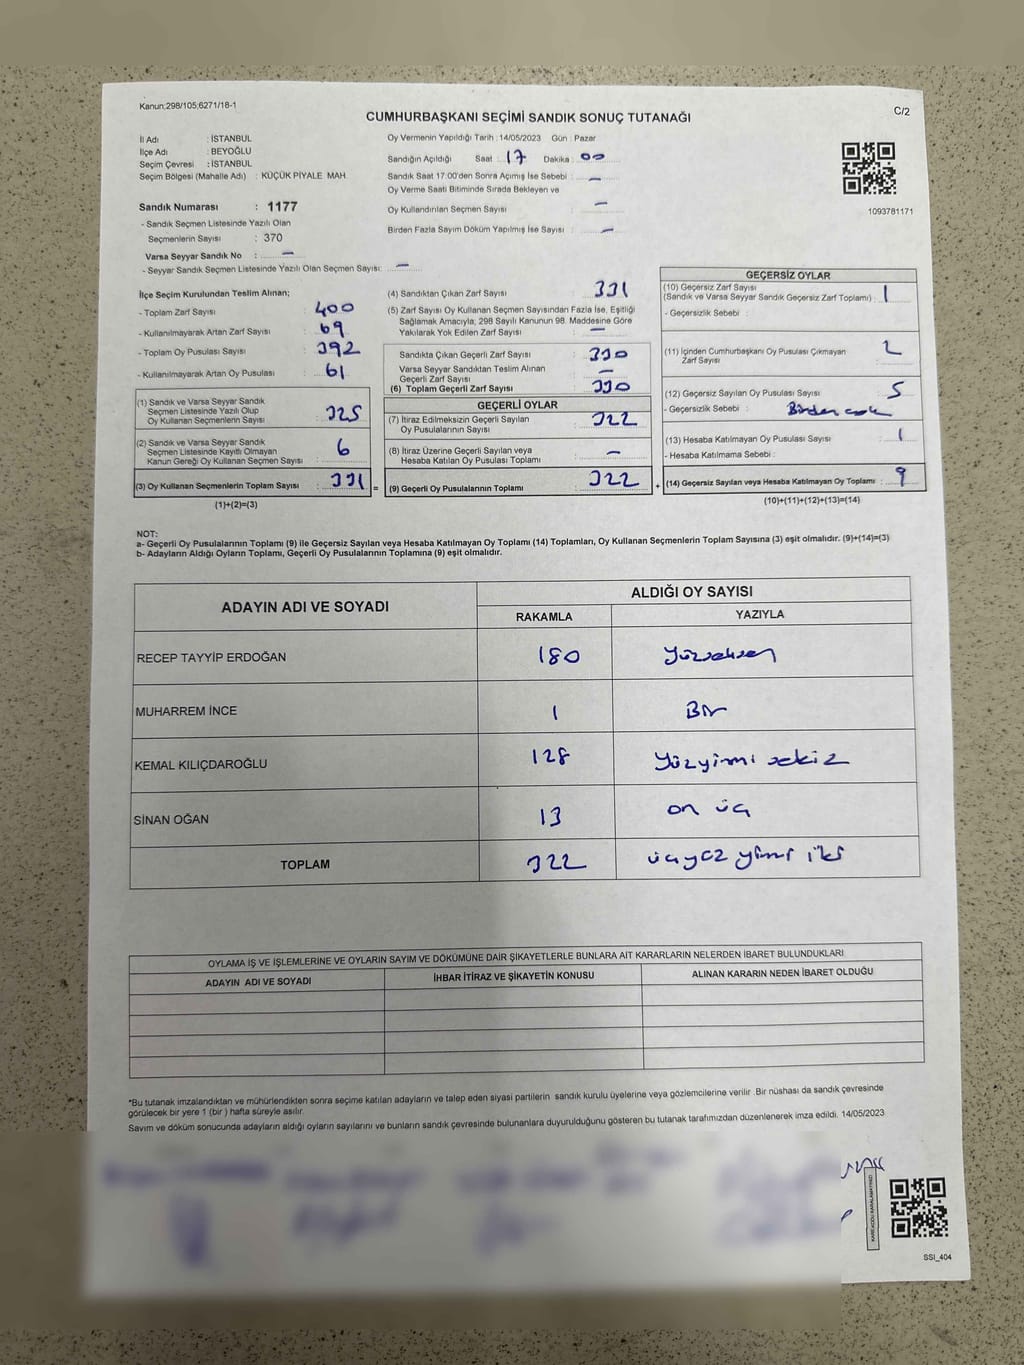 Kanun:298/105;6271/18-1
C/2
CUMHURBAŞKANI SEÇİMİ SANDIK SONUÇ TUTANAĞI
İl Adı : İSTANBUL
İlçe Adı : BEYOĞLU
Seçim Çevresi : İSTANBUL
Seçim Bölgesi (Mahalle Adı) : KÜÇÜK PİYALE MAH.
Sandık Numarası : 1177
- Sandık Seçmen Listesinde Yazılı Olan
Seçmenlerin Sayısı : 370
Varsa Seyyar Sandık No : —
- Seyyar Sandık Seçmen Listesinde Yazılı Olan Seçmen Sayısı: —
Oy Vermenin Yapıldığı Tarih : 14/05/2023 Gün : Pazar
Sandığın Açıldığı Saat : 17 Dakika : 00
Sandık Saat 17:00'den Sonra Açımış İse Sebebi : —
Oy Verme Saati Bitiminde Sırada Bekleyen ve
Oy Kullandırılan Seçmen Sayısı : —
Birden Fazla Sayım Döküm Yapılmış İse Sayısı : —
1093781171
İlçe Seçim Kurulundan Teslim Alınan;
- Toplam Zarf Sayısı : 400
- Kullanılmayarak Artan Zarf Sayısı : 69
- Toplam Oy Pusulası Sayısı : 392
- Kullanılmayarak Artan Oy Pusulası : 61
(1) Sandık ve Varsa Seyyar Sandık
Seçmen Listesinde Yazılı Olup
Oy Kullanan Seçmenlerin Sayısı : 325
(2) Sandık ve Varsa Seyyar Sandık
Seçmen Listesinde Kayıtlı Olmayan
Kanun Gereği Oy Kullanan Seçmen Sayısı : 6
(3) Oy Kullanan Seçmenlerin Toplam Sayısı : 331 =
(1)+(2)=(3)
(4) Sandıktan Çıkan Zarf Sayısı : 331
(5) Zarf Sayısı Oy Kullanan Seçmen Sayısından Fazla İse, Eşitliği
Sağlamak Amacıyla, 298 Sayılı Kanunun 98. Maddesine Göre
Yakılarak Yok Edilen Zarf Sayısı : —
Sandıkta Çıkan Geçerli Zarf Sayısı : 330
Varsa Seyyar Sandıktan Teslim Alınan
Geçerli Zarf Sayısı : —
(6) Toplam Geçerli Zarf Sayısı : 330
GEÇERLİ OYLAR
(7) İtiraz Edilmeksizin Geçerli Sayılan
Oy Pusulalarının Sayısı : 322
(8) İtiraz Üzerine Geçerli Sayılan veya
Hesaba Katılan Oy Pusulası Toplamı : —
(9) Geçerli Oy Pusulalarının Toplamı : 322 +
GEÇERSİZ OYLAR
(10) Geçersiz Zarf Sayısı
(Sandık ve Varsa Seyyar Sandık Geçersiz Zarf Toplamı) : 1
- Geçersizlik Sebebi :
(11) İçinden Cumhurbaşkanı Oy Pusulası Çıkmayan
Zarf Sayısı : 2
(12) Geçersiz Sayılan Oy Pusulası Sayısı : 5
- Geçersizlik Sebebi : Birden çok
(13) Hesaba Katılmayan Oy Pusulası Sayısı : 1
- Hesaba Katılmama Sebebi :
(14) Geçersiz Sayılan veya Hesaba Katılmayan Oy Toplamı : 9
(10)+(11)+(12)+(13)=(14)
NOT:
a- Geçerli Oy Pusulalarının Toplamı (9) ile Geçersiz Sayılan veya Hesaba Katılmayan Oy Toplamı (14) Toplamları, Oy Kullanan Seçmenlerin Toplam Sayısına (3) eşit olmalıdır. (9)+(14)=(3)
b- Adayların Aldığı Oyların Toplamı, Geçerli Oy Pusulalarının Toplamına (9) eşit olmalıdır.
ADAYIN ADI VE SOYADI ALDIĞI OY SAYISI
RAKAMLA YAZIYLA
RECEP TAYYİP ERDOĞAN 180 Yüzseksen
MUHARREM İNCE 1 Bir
KEMAL KILIÇDAROĞLU 128 Yüzyirmi sekiz
SİNAN OĞAN 13 on üç
TOPLAM 322 üçyüz yirmi iki
OYLAMA İŞ VE İŞLEMLERİNE VE OYLARIN SAYIM VE DÖKÜMÜNE DAİR ŞİKAYETLERLE BUNLARA AİT KARARLARIN NELERDEN İBARET BULUNDUKLARI
ADAYIN ADI VE SOYADI İHBAR İTİRAZ VE ŞİKAYETİN KONUSU ALINAN KARARIN NEDEN İBARET OLDUĞU
*Bu tutanak imzalandıktan ve mühürlendikten sonra seçime katılan adayların ve talep eden siyasi partilerin sandık kurulu üyelerine veya gözlemcilerine verilir. Bir nüshası da sandık çevresinde
görülecek bir yere 1 (bir ) hafta süreyle asılır.
Sayım ve döküm sonucunda adayların aldığı oyların sayılarını ve bunların sandık çevresinde bulunanlara duyurulduğunu gösteren bu tutanak tarafımızdan düzenlenerek imza edildi. 14/05/2023
KAREKODU KARALAMAYINIZ!
SSI_404